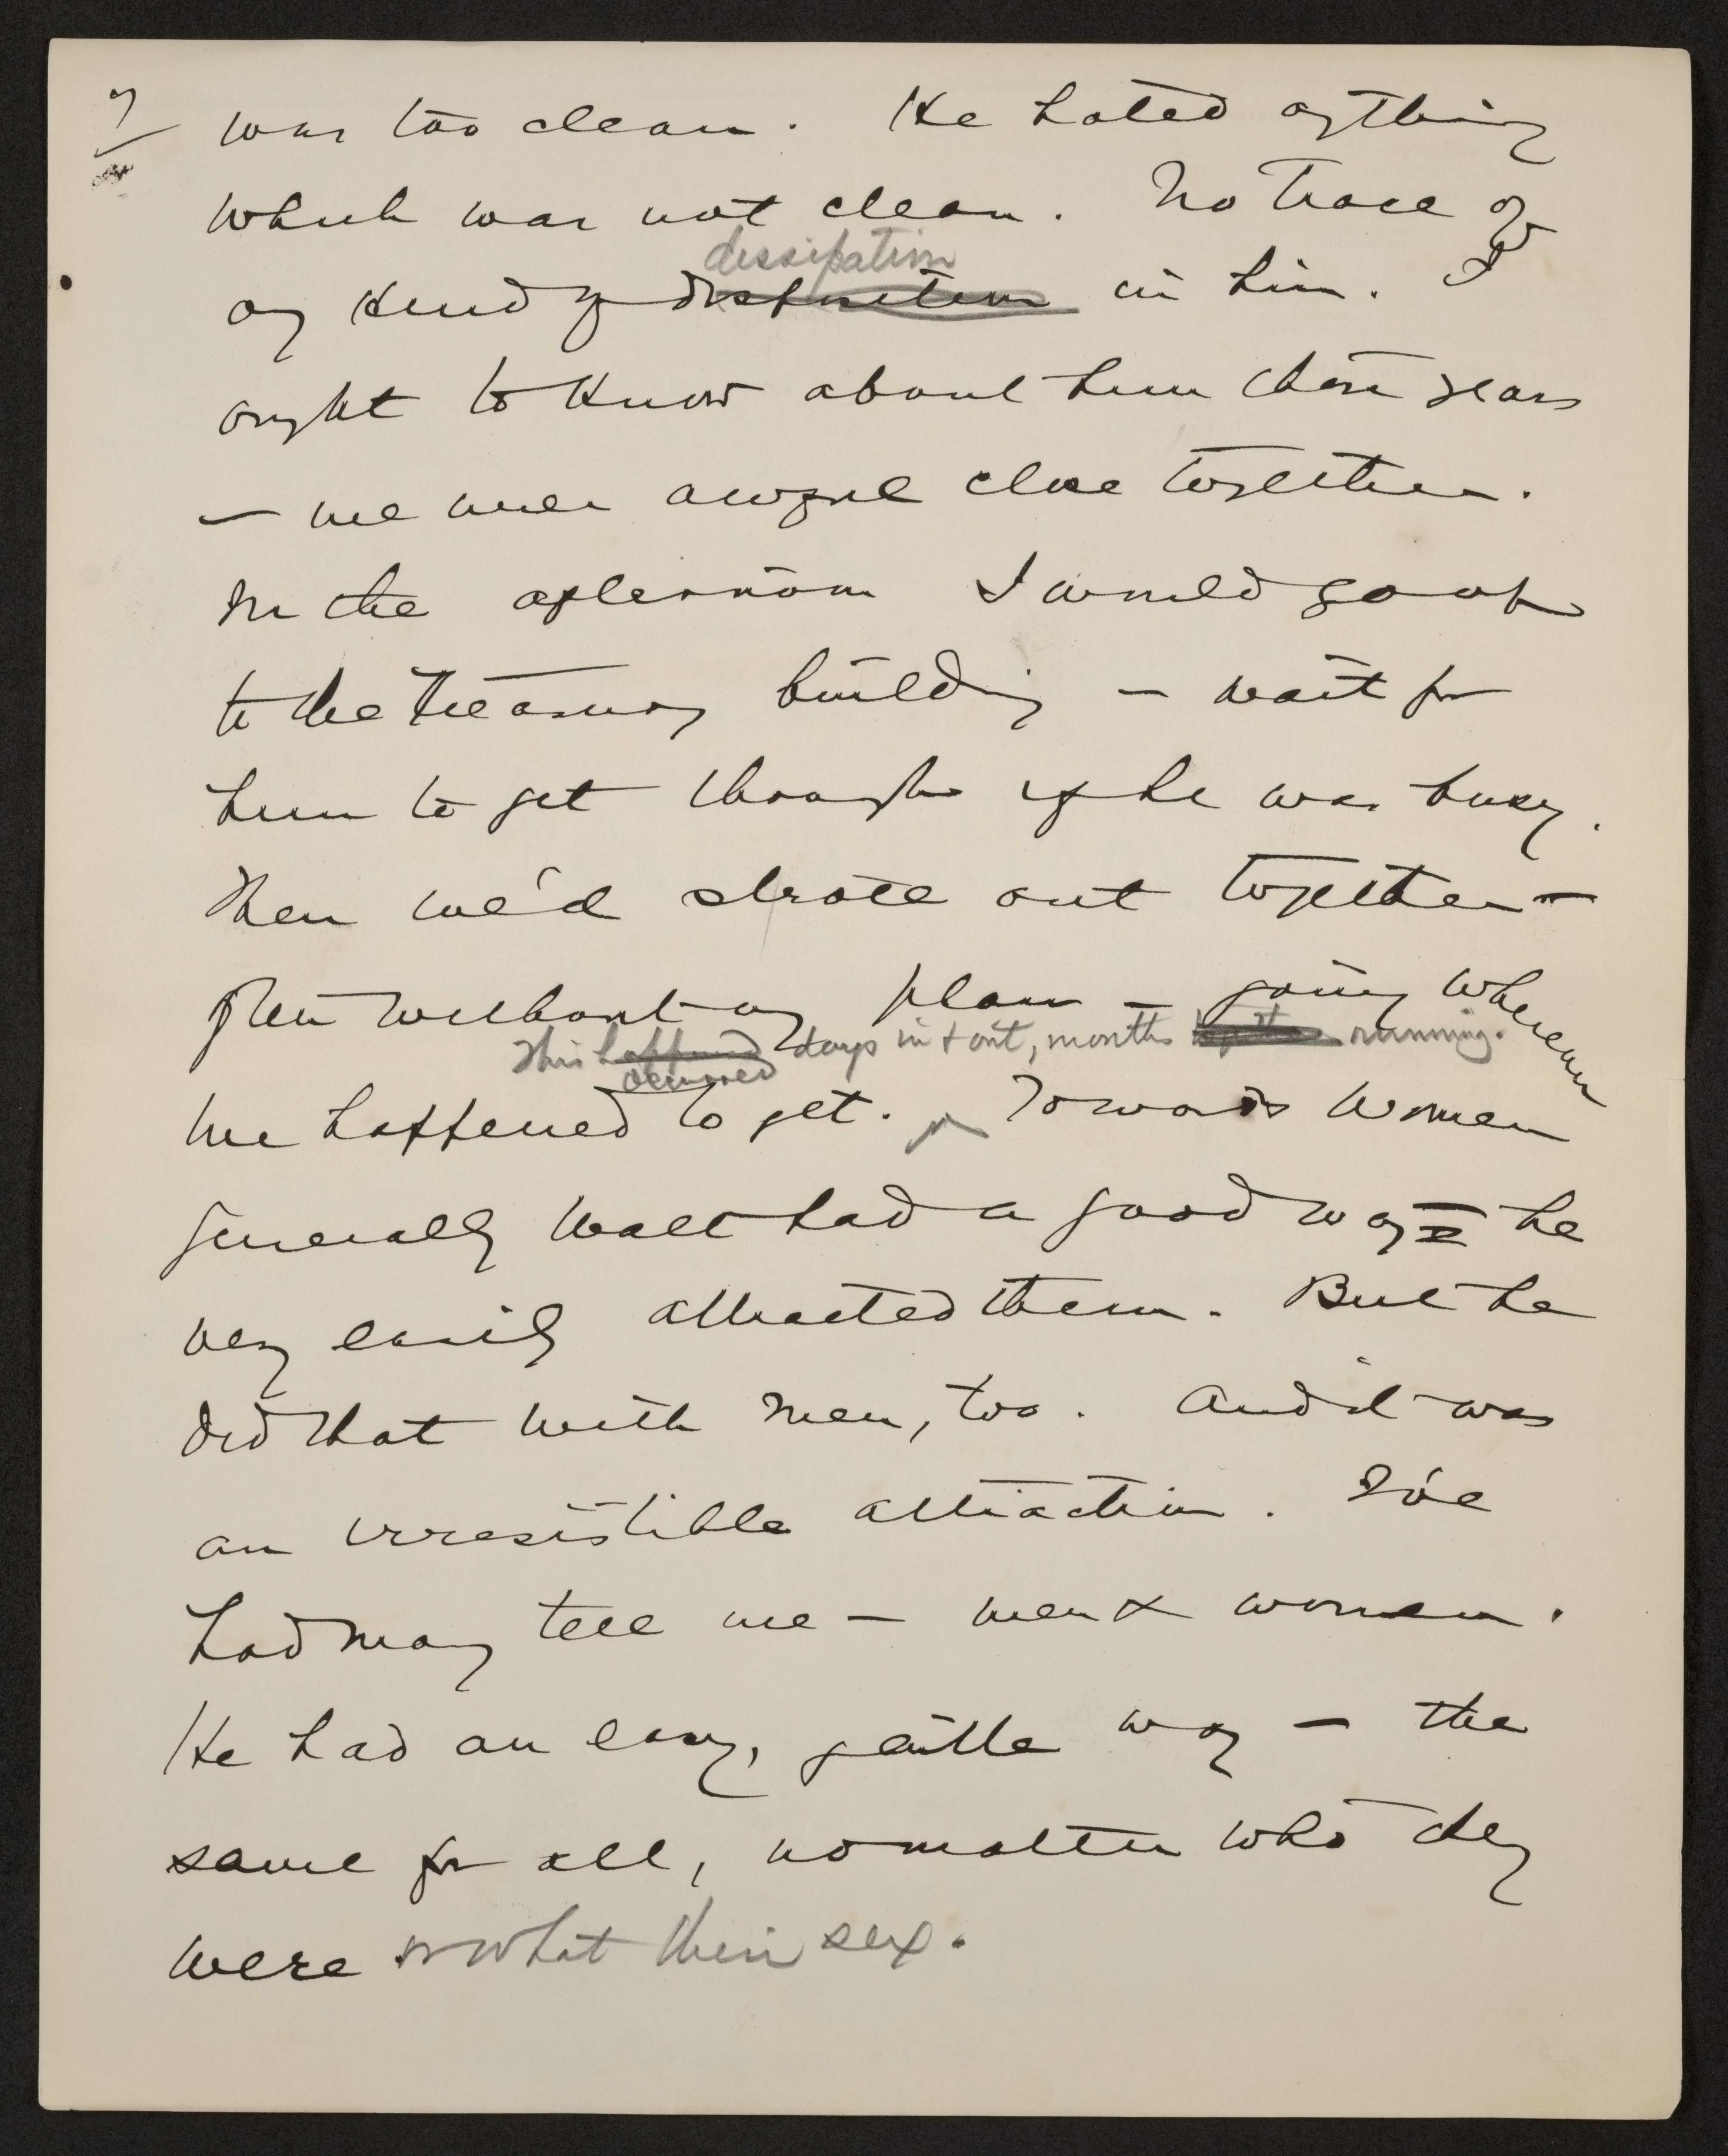 7 was too clean. He hated anything
which was not clean. No trace of
dissipation
any kind of in him. I
ought to know about him those years
— we were awful close together.
In the afternoon I would go up
to the Treasury building — wait for
him to get through if he was busy.
Then we'd stroll out together —
often without any plan — going wherever
This happened occurred days in & out, months running.
we happened to get. Towards women
generally Walt had a good way — he
very easily attracted them. But he
did that with men, too. And it was
an irresistible attraction. I've
had many tell me — men & women.
He had an easy, gentle way — the
same for all, no matter who they
were or what their sex.